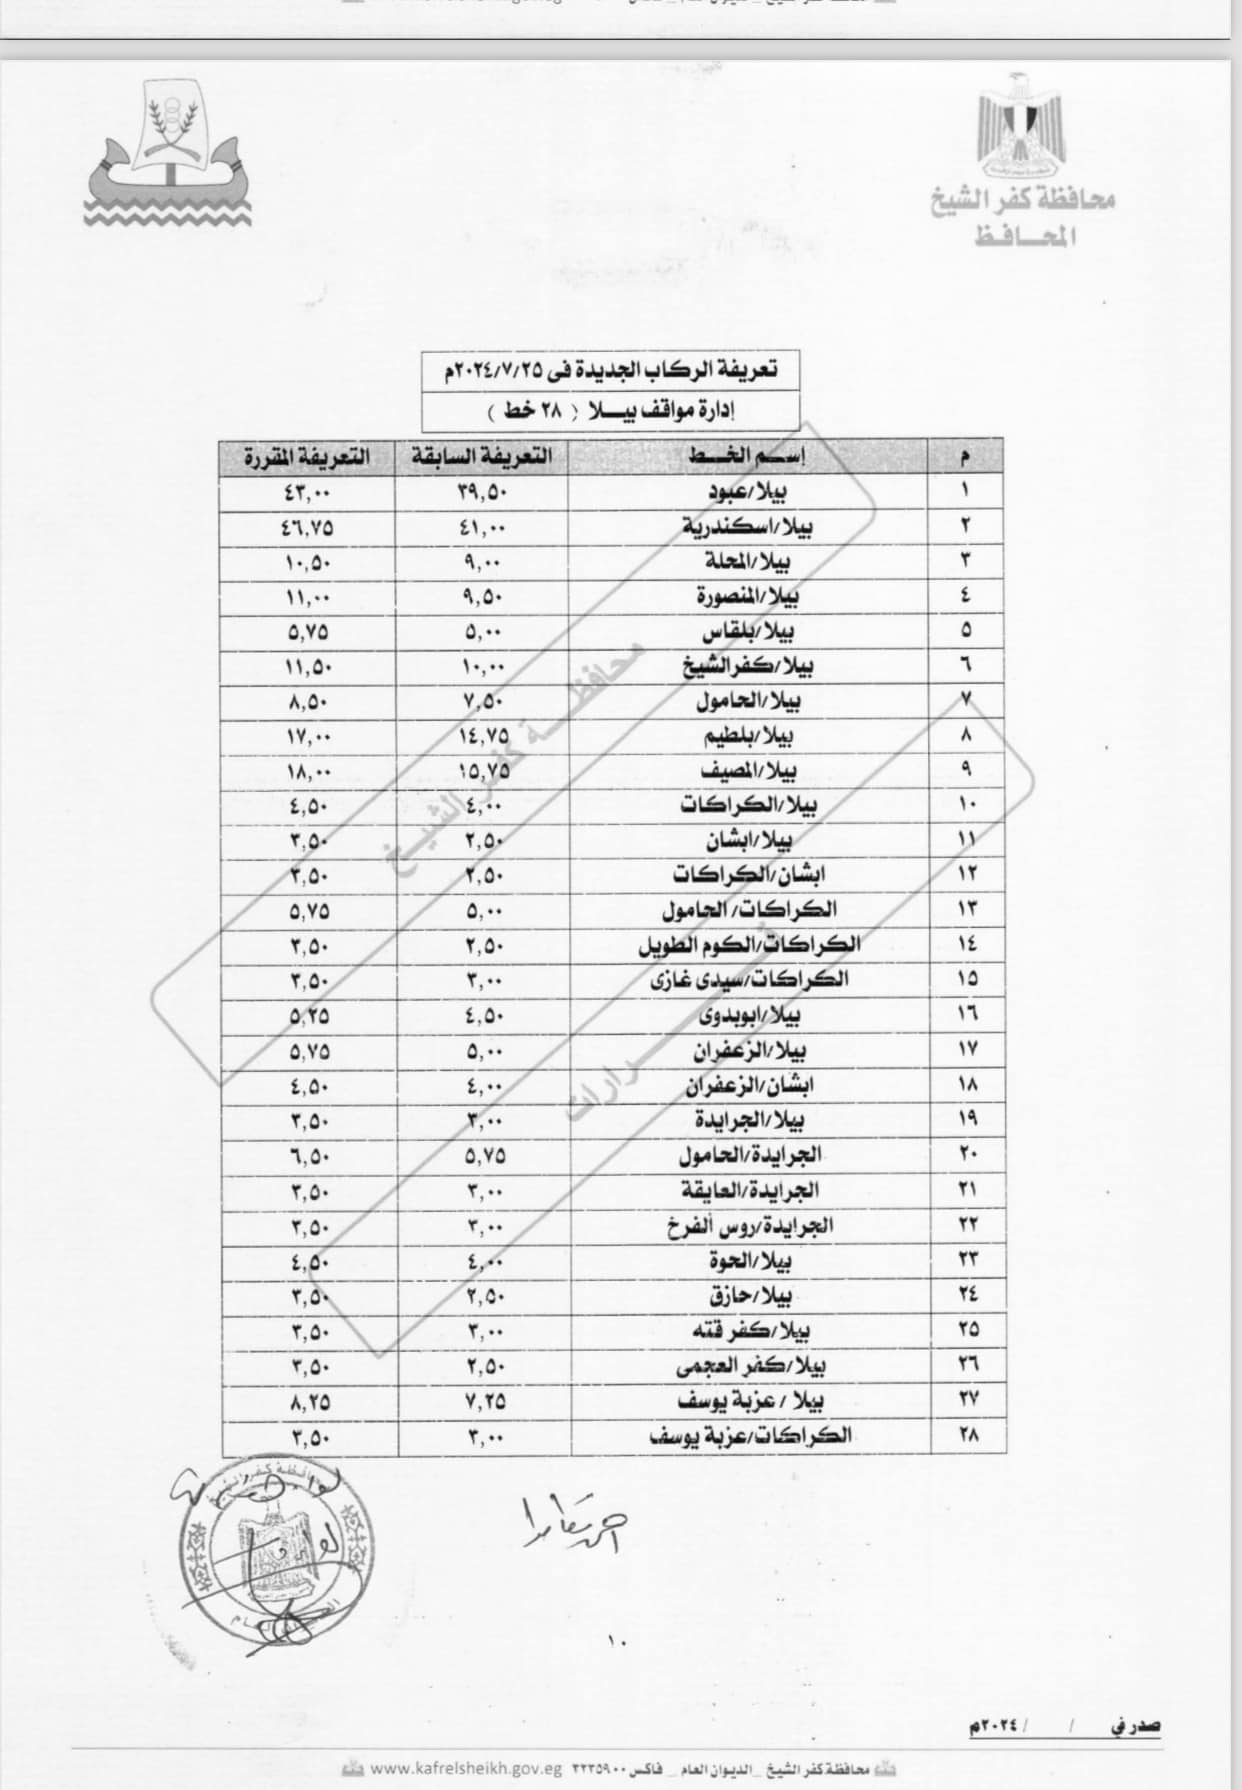 محافظة كفر الشيخ
المحافظ
تعريفة الركاب الجديدة فى ٢٠٢٤/٧/٢٥م
إدارة مواقف بيلا ( ٢٨ خط )
م إسم الخط التعريفة السابقة التعريفة المقررة
١ بيلا/عبود ٣٩,٥٠ ٤٣,٠٠
٢ بيلا/اسكندرية ٤١,٠٠ ٤٦,٧٥
٣ بيلا/المحلة ٩,٠٠ ١٠,٥٠
٤ بيلا/المنصورة ٩,٥٠ ١١,٠٠
٥ بيلا/بلقاس ٥,٠٠ ٥,٧٥
٦ بيلا/كفرالشيخ ١٠,٠٠ ١١,٥٠
٧ بيلا/الحامول ٧,٥٠ ٨,٥٠
٨ بيلا/بلطيم ١٤,٧٥ ١٧,٠٠
٩ بيلا/المصيف ١٥,٧٥ ١٨,٠٠
١٠ بيلا/الكراكات ٤,٠٠ ٤,٥٠
١١ بيلا/ابشان ٢,٥٠ ٣,٥٠
١٢ ابشان/الكراكات ٢,٥٠ ٣,٥٠
١٣ الكراكات/ الحامول ٥,٠٠ ٥,٧٥
١٤ الكراكات/الكوم الطويل ٢,٥٠ ٣,٥٠
١٥ الكراكات/سيدى غازى ٣,٠٠ ٣,٥٠
١٦ بيلا/ابوبدوى ٤,٥٠ ٥,٢٥
١٧ بيلا/الزعفران ٥,٠٠ ٥,٧٥
١٨ ابشان/الزعفران ٤,٠٠ ٤,٥٠
١٩ بيلا/الجرايدة ٣,٠٠ ٣,٥٠
٢٠ الجرايدة/الحامول ٥,٧٥ ٦,٥٠
٢١ الجرايدة/العايقة ٣,٠٠ ٣,٥٠
٢٢ الجرايدة/روس الفرخ ٣,٠٠ ٣,٥٠
٢٣ بيلا/الحوة ٤,٠٠ ٤,٥٠
٢٤ بيلا/حازق ٢,٥٠ ٣,٥٠
٢٥ بيلا/كفر قته ٣,٠٠ ٣,٥٠
٢٦ بيلا/كفر العجمى ٢,٥٠ ٣,٥٠
٢٧ بيلا / عزبة يوسف ٧,٢٥ ٨,٢٥
٢٨ الكراكات/عزبة يوسف ٣,٠٠ ٣,٥٠
محافظة كفر الشيخ
قرارات
محافظة كفر الشيخ
١٠
صدر في / / ٢٠٢٤م
محافظة كفر الشيخ _ الديوان العام _ فاكس ٣٢٣٥٩٠٠ www.kafrelsheikh.gov.eg